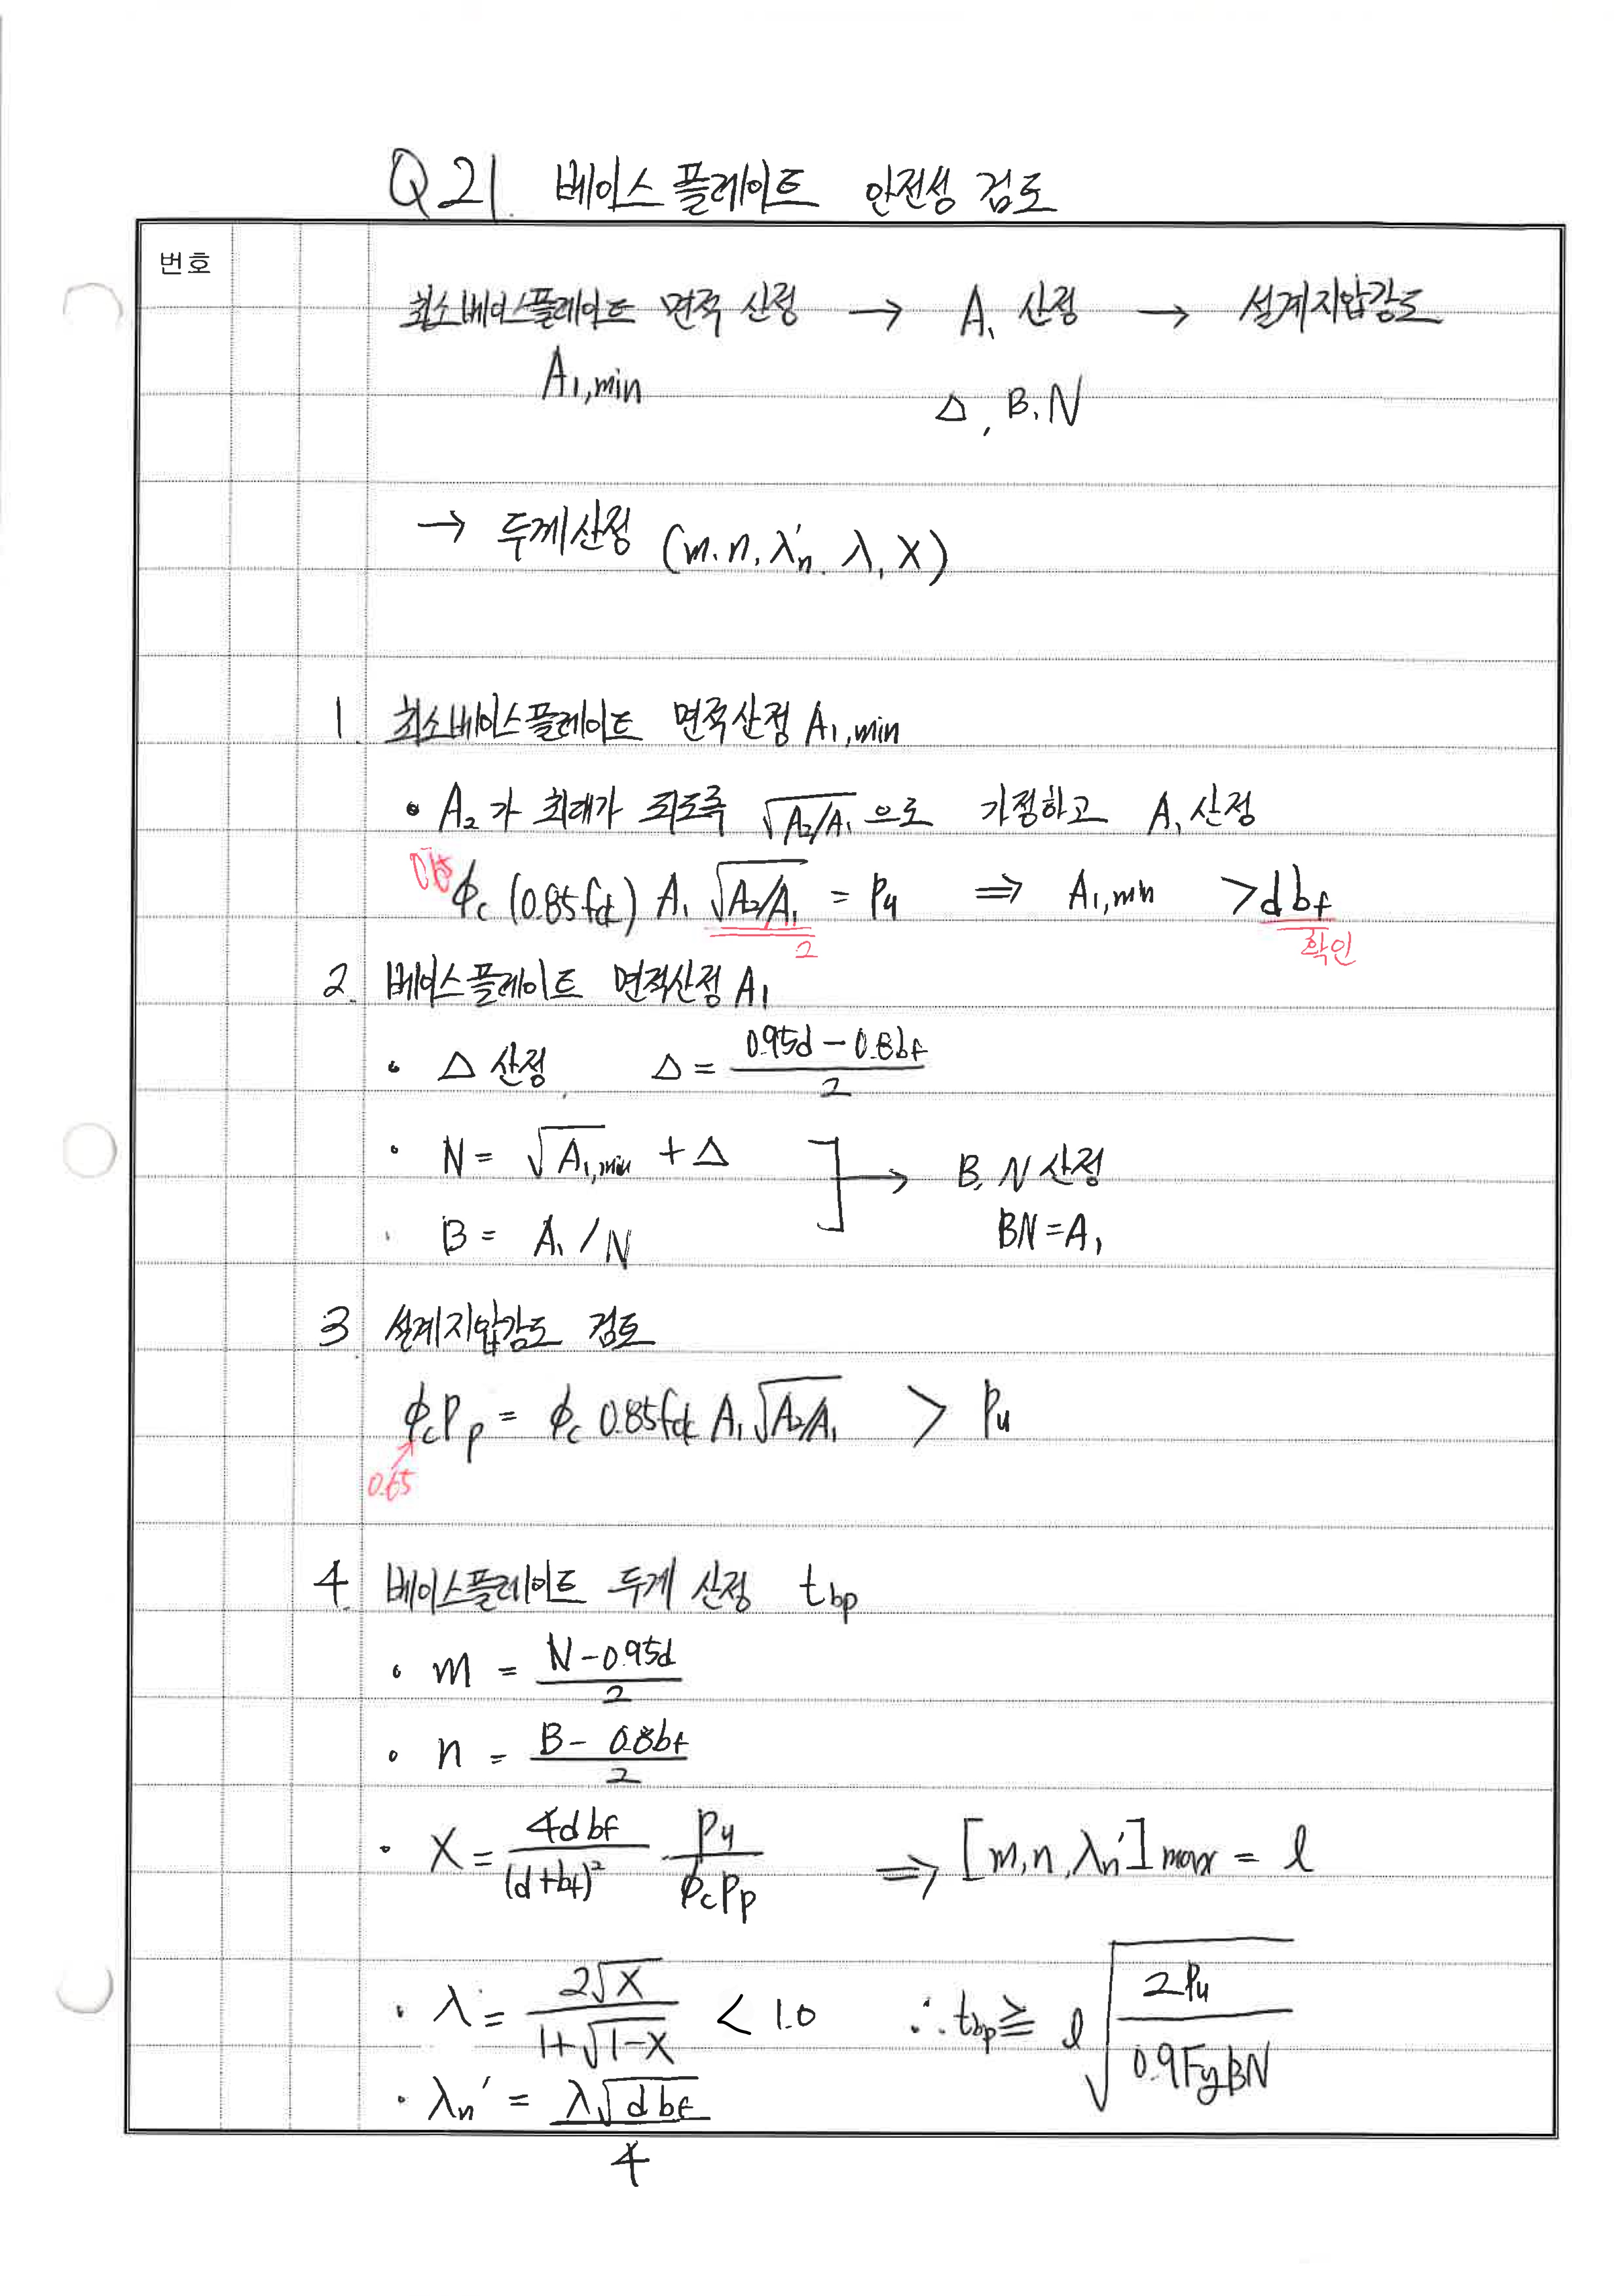 Q21. 베이스 플레이트 안전성 검토
번호
최소베이스플레이트 면적 산정 → A₁ 산정 → 설계지압강도
A₁,min
Δ, B, N
→ 두께산정 (m, n, λ'n, λ, X)
1. 최소베이스플레이트 면적산정 A₁,min
• A₂가 최대가 되도록 √(A₂/A₁) 으로 가정하고 A₁ 산정
0.65
ϕc (0.85fck) A₁ √(A₂/A₁) = Pu ⇒ A₁,min > d bf
2
확인
2. 베이스플레이트 면적산정 A₁
• Δ 산정 Δ = (0.95d - 0.8bf)/2
• N = √A₁,min + Δ → B, N 산정
• B = A₁ / N BN = A₁
3 설계지압강도 검토
ϕcPp = ϕc 0.85fck A₁ √(A₂/A₁) > Pu
0.65
4. 베이스플레이트 두께 산정 tbp
• m = (N - 0.95d)/2
• n = (B - 0.8bf)/2
• X = 4dbf/(d+bf)² Pu/ϕcPp ⇒ [m, n, λn']max = l
• λ = 2√X/(1+√(1-X)) < 1.0 ∴ tbp ≥ l √(2Pu/0.9FyBN)
• λn' = λ√(d bf)/4